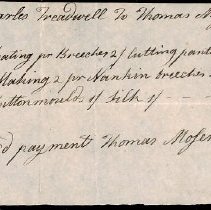 arles Treadwell To Thomas M
ating pr Breeches 2/ Cutting pant
Making 2 pr Nankin breeches
uttonmoulds 1/ Silk 1/
d payment Thomas Moses